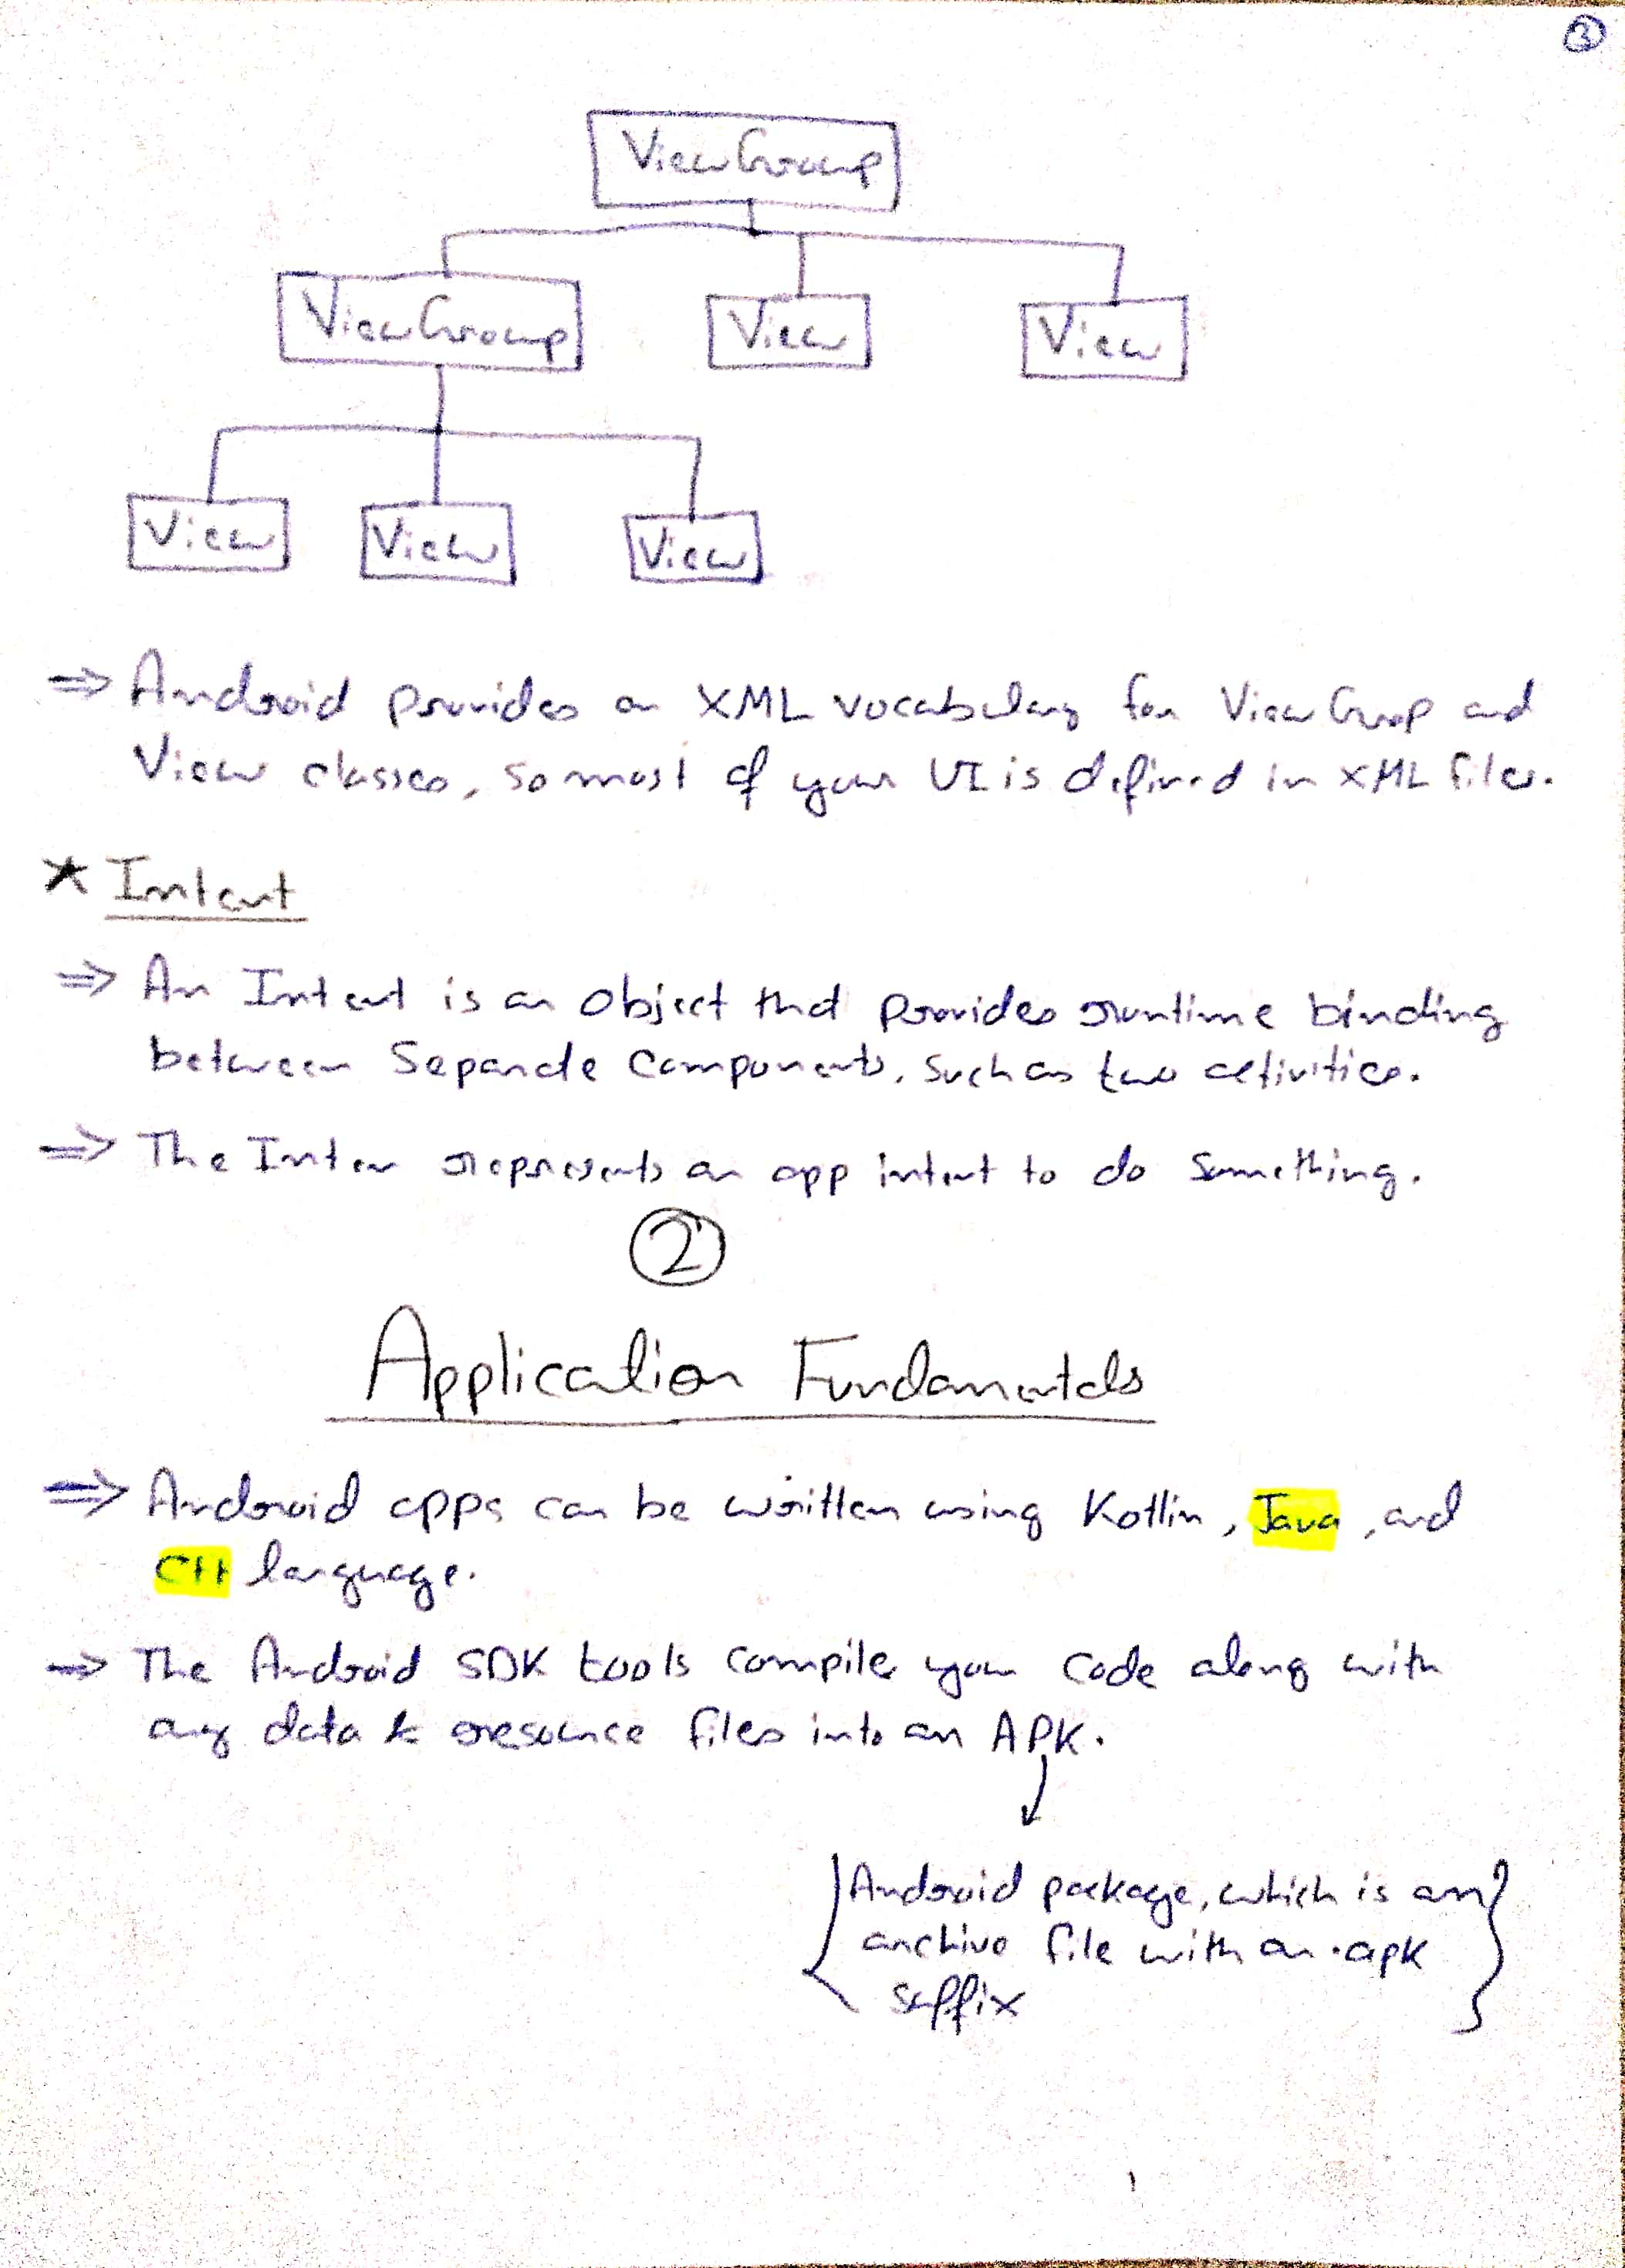 3
ViewGroup
ViewGroup View View
View View View
⇒ Android provides an XML vocabulary for ViewGroup and
View classes, so most of your UI is defined in XML files.
* Intent
⇒ An Intent is an object that provides runtime binding
between separate components, such as two activities.
⇒ The Inten represents an app intent to do something.
2
Application Fundamentals
⇒ Android apps can be written using Kotlin, Java, and
C++ language.
⇒ The Android SDK tools compile your code along with
any data & resource files into an APK.
Android package, which is an
archive file with an .apk
suffix